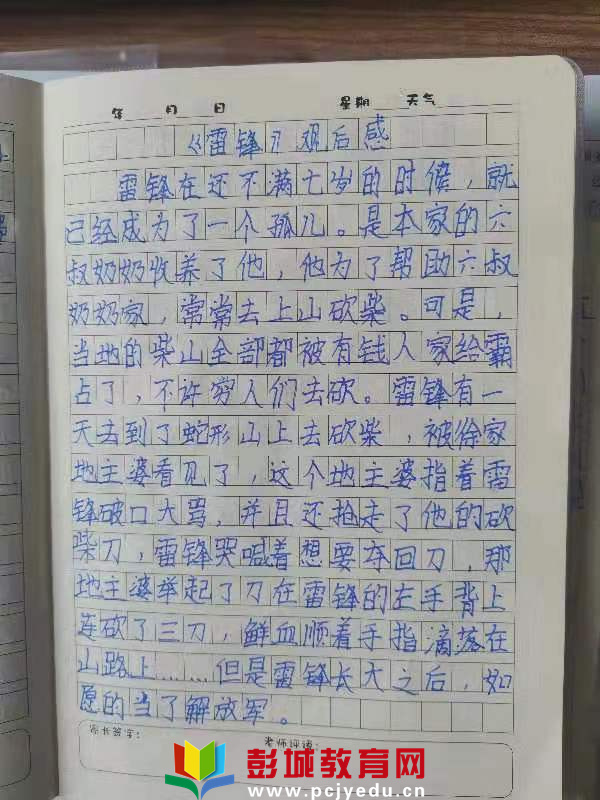 年 月 日 星期 天气
《雷锋》观后感
雷锋在还不满七岁的时候,就
已经成为了一个孤儿。是本家的六
叔奶奶收养了他,他为了帮助六叔
奶奶家,常常去上山砍柴。可是,
当地的柴山全部都被有钱人家给霸
占了,不许穷人们去砍。雷锋有一
天去到了蛇形山上去砍柴,被徐家
地主婆看见了,这个地主婆指着雷
锋破口大骂,并且还抢走了他的砍
柴刀,雷锋哭喊着想要夺回刀,那
地主婆举起了刀在雷锋的左手背上
连砍了三刀,鲜血顺着手指滴落在
山路上……但是雷锋长大之后,如
愿的当了解放军。
家长签字: 老师评语:
彭城教育网
www.pcjyedu.cn